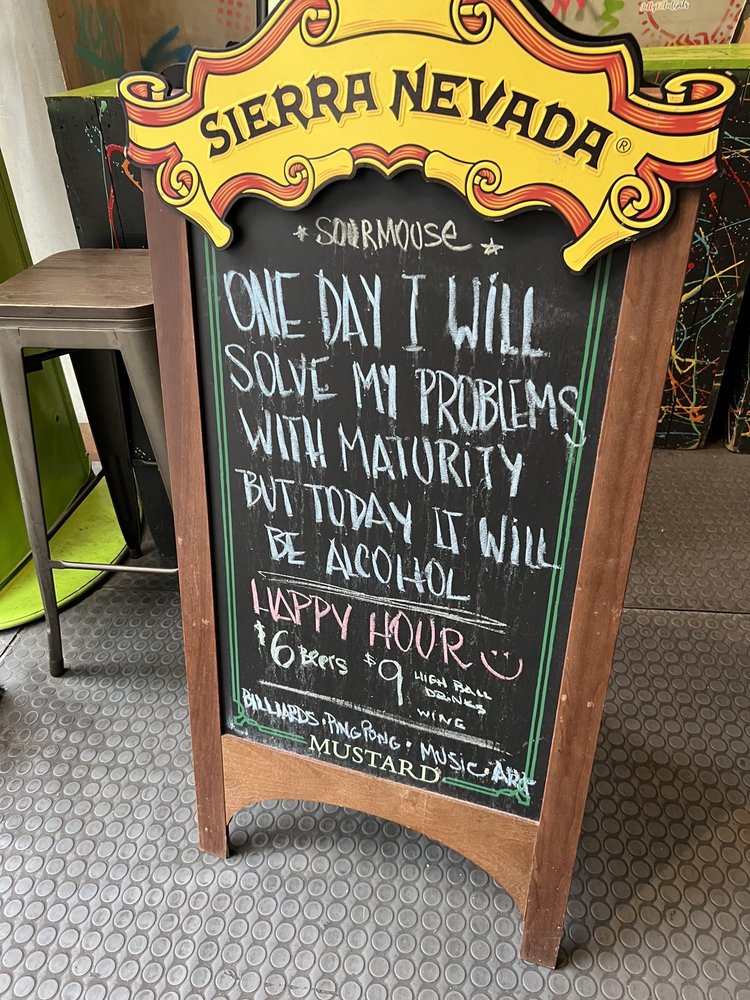 SIERRA NEVADA®
★ SOURMOUSE ★
ONE DAY I WILL
SOLVE MY PROBLEMS
WITH MATURITY
BUT TODAY IT WILL
BE ALCOHOL
HAPPY HOUR
$6 Beers $9 HIGH BALL
DRINKS
WINE
BILLIARDS · PING PONG · MUSIC ART
MUSTARD